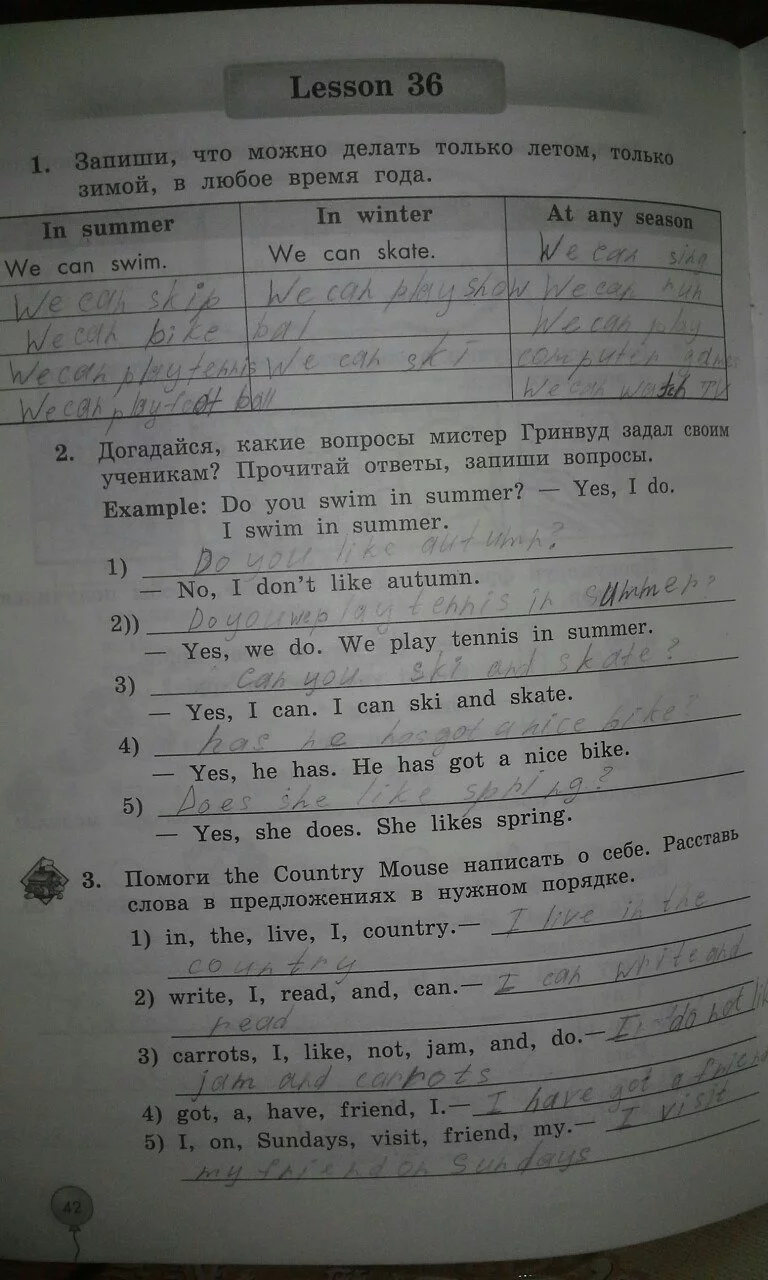 Lesson 36
1. Запиши, что можно делать только летом, только
зимой, в любое время года.
In summer In winter At any season
We can swim. We can skate. We can sing
We can skip We can play show We can run
We can bike bal We can play
We can play tennis We can ski computer games
We can play foot ball We can watch TV
2. Догадайся, какие вопросы мистер Гринвуд задал своим
ученикам? Прочитай ответы, запиши вопросы.
Example: Do you swim in summer? — Yes, I do.
I swim in summer.
1) Do you like autumn?
— No, I don't like autumn.
2)) Do you play tennis in summer?
— Yes, we do. We play tennis in summer.
3) Can you ski and skate?
— Yes, I can. I can ski and skate.
4) has he got a nice bike?
— Yes, he has. He has got a nice bike.
5) Does she like spring?
— Yes, she does. She likes spring.
3. Помоги the Country Mouse написать о себе. Расставь
слова в предложениях в нужном порядке.
1) in, the, live, I, country.— I live in the
country
2) write, I, read, and, can.— I can write and
read
3) carrots, I, like, not, jam, and, do.— I do not li
jam and carrots
4) got, a, have, friend, I.— I have got a friend
5) I, on, Sundays, visit, friend, my.— I visit
my friend on Sundays
42